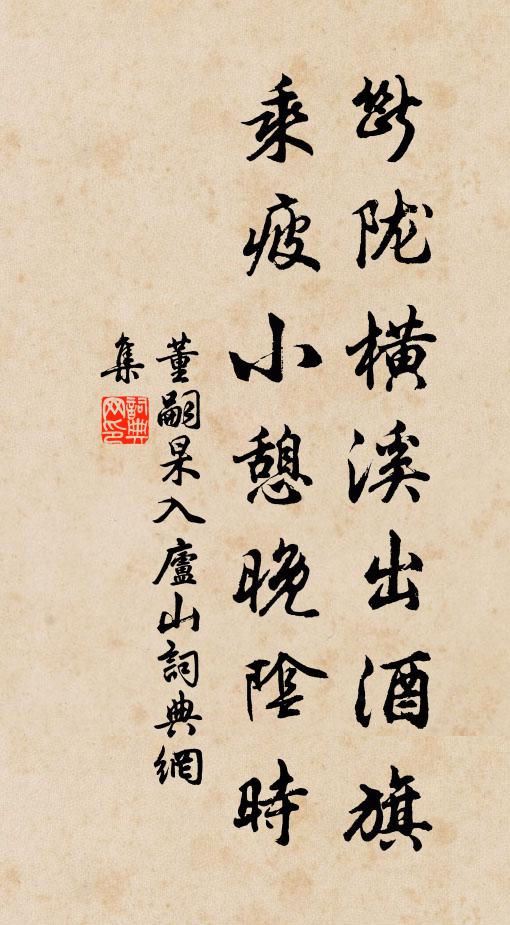 斷陇橫溪出酒旗
乘疲小憩晚陰時
董嗣杲入廬山詞典網
集
詞典網印